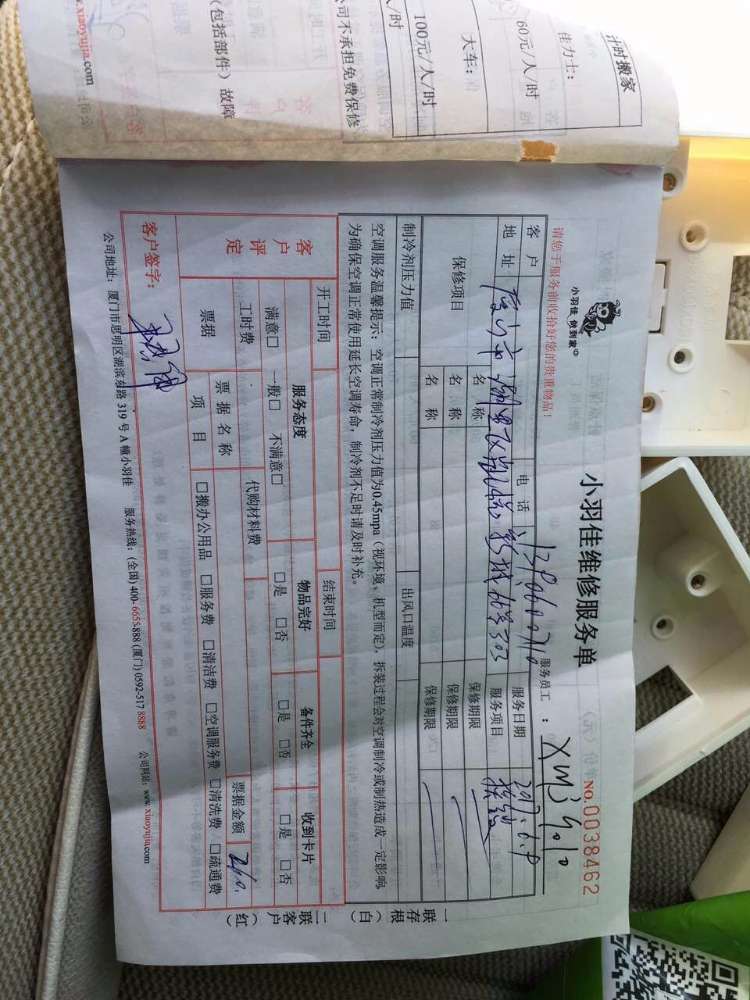 计时搬家
佳力士：
60元/人/时
大车：
100元/人/时
/人/时
公司不承担免费保修
(包括部件) 故障
www.xiaoyujia.com
小羽佳 做到家
小羽佳维修服务单
NO.0038462
请您于服务前收拾好您的贵重物品！
服务员工：XM34010
客户
电话
服务日期
2017.6.9
地址
服务项目
保修项目
名称
保修期限
名称
保修期限
名称
保修期限
制冷剂压力值
出风口温度
空调服务温馨提示：空调正常制冷剂压力值为0.45mpa（视环境、机型而定），拆装过程会对空调制冷或制热造成一定影响，
为确保空调正常使用延长空调寿命，制冷剂不足时请及时补充。
一联存根（白）
二联客户（红）
开工时间
结束时间
客户评定
服务态度
物品完好
备件齐全
收到卡片
满意□ 一般□ 不满意□
□是 □否
□是 □否
□是 □否
工时费
代购材料费
票据金额
240.
票据
票据名称
项目
□搬办公用品 □服务费 □清洁费 □空调服务费 □清洗费 □疏通费
客户签字：
公司地址：厦门市思明区湖滨南路 319 号 A 幢小羽佳 服务热线：(全国) 400-6655-888 (厦门) 0592-517 8888 公司网站：www.xiaoyujia.com